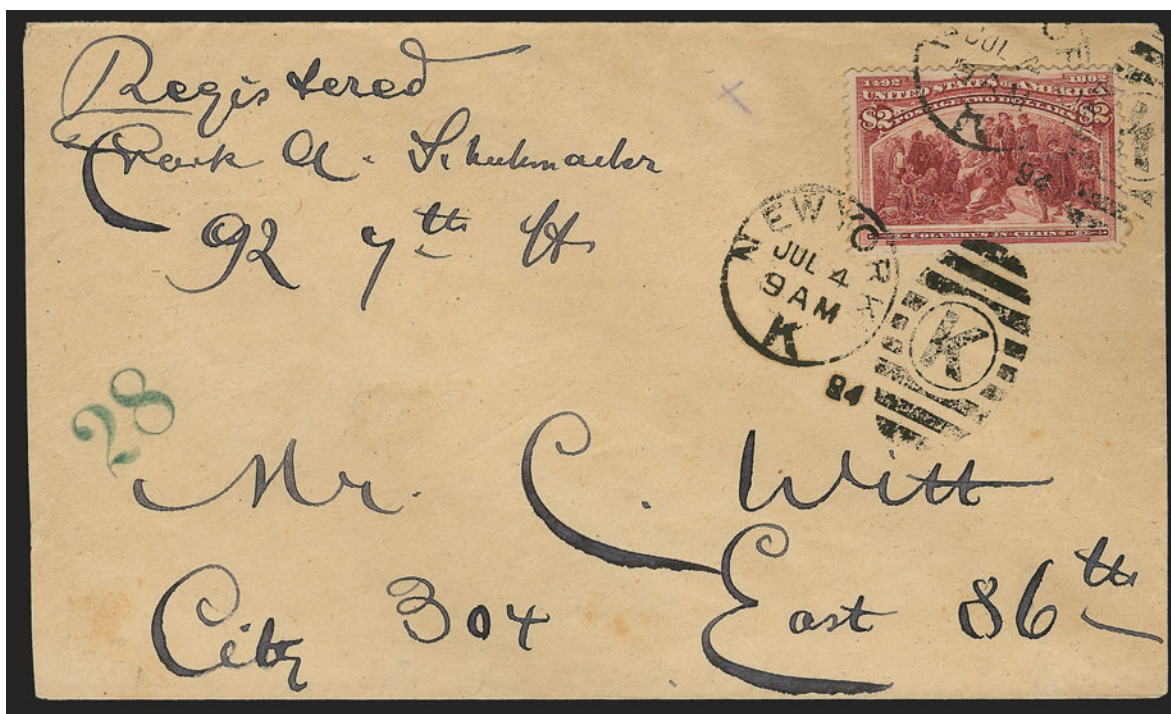 Registered
Park A. Schuhmacher
92 7th St
1492 1892
UNITED STATES OF AMERICA
POSTAGE TWO DOLLARS
$2 $2
COLUMBUS IN CHAINS
JUL
K
94
NEW YORK
JUL 4
9 AM
K
94
K
28
Mr. C. Witt
City 304 East 86th